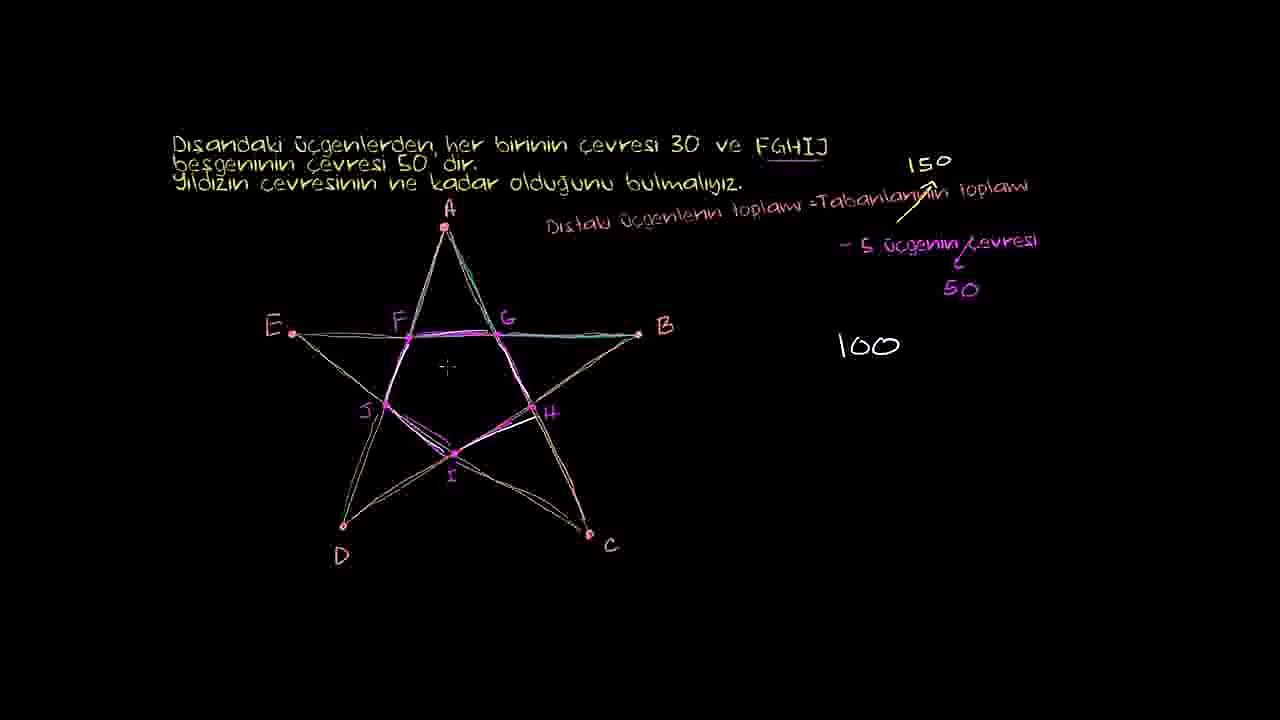 Dışarıdaki üçgenlerden, her birinin çevresi 30 ve FGHIJ
beşgeninin çevresi 50 dir.
Yıldızın çevresinin ne kadar olduğunu bulmalıyız.
150
Dıştaki üçgenlerin toplamı = Tabanlarının toplamı
- 5 üçgenin çevresi
50
100
A
E
F
G
B
J
H
I
D
C